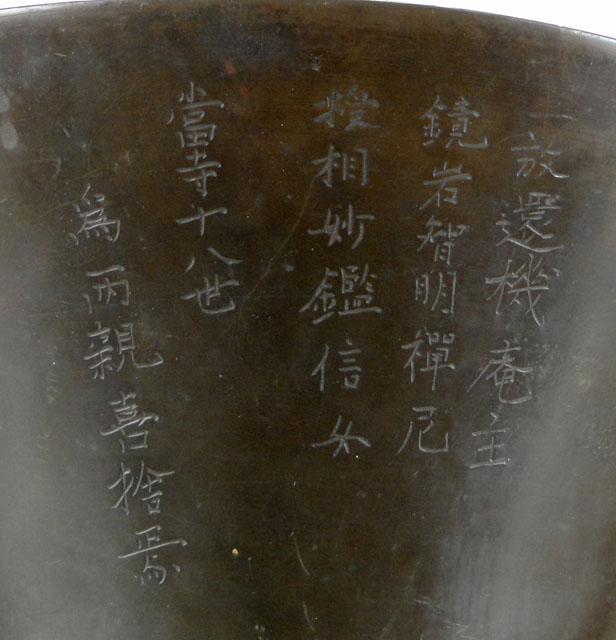 一放還機庵主
鏡岩智明禪尼
授相妙鑑信女
當寺十八世
為兩親喜捨焉